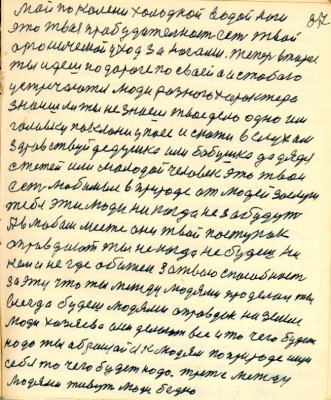 мой по колени холодной водой ноги 87
это твая пробудительност сет твой
органический уход за ногами. тепер втарое
ты идеш по дароге по своей а и стобою
устречаются люди разного характера
знаиш ли ты не знаеш твое дело одно им
головку поклони упоес и скажи в слух им
здравствуй дедушка или бабушка да дядя
с тетей или молодой человек это твои
сет любимые в природе от людей
тебя эти люди ни когда не забудут
Лю мобом месте они твой поступок
оправдают ты не когда не будеш ни
кем и не где обижен за твою способност
за эту что ты между людями проделал ты
всегда будеш людями оправдон на земле
люди хазяева они делают все и то чего будет
надо ты обращайся к людям по природе ищи
себя то чего будет надо. трете между
людями живут люди бедно